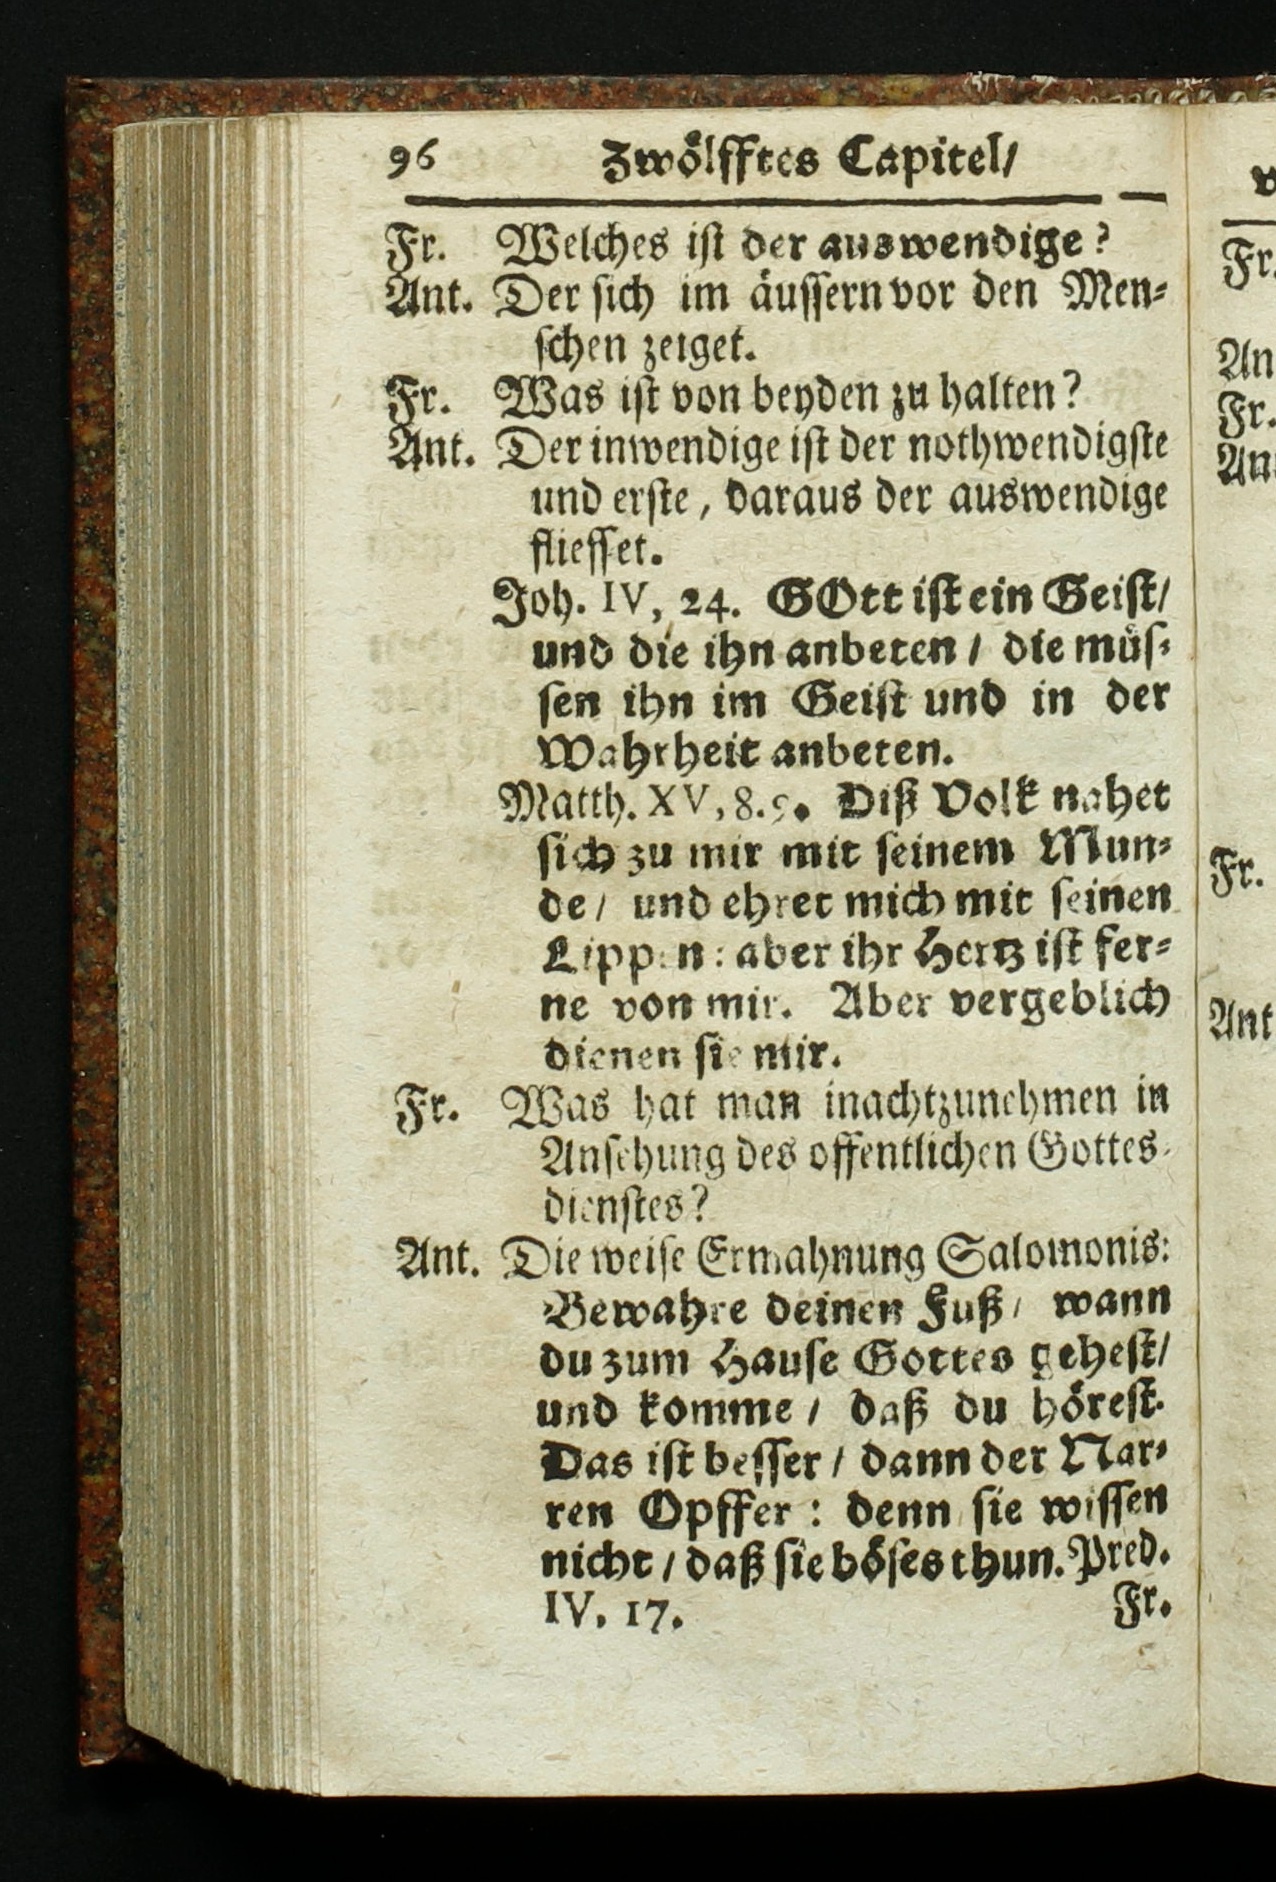 96 Zwölfftes Capitel/
Fr. Welches iſt der auswendige?
Ant. Der ſich im äuſſern vor den Men⸗
ſchen zeiget.
Fr. Was iſt von beyden zu halten?
Ant. Der inwendige iſt der nothwendigſte
und erſte, daraus der auswendige
flieſſet.
Joh. IV, 24. GOtt iſt ein Geiſt/
und die ihn anbeten / die müſ⸗
ſen ihn im Geiſt und in der
Wahrheit anbeten.
Matth. XV, 8.9. Diß Volk nahet
ſich zu mir mit ſeinem Mun⸗
de / und ehret mich mit ſeinen
Lippen: aber ihr Hertz iſt fer⸗
ne von mir. Aber vergeblich
dienen ſie mir.
Fr. Was hat man inachtzunehmen in
Anſehung des offentlichen Gottes⸗
dienſtes?
Ant. Die weiſe Ermahnung Salomonis:
Bewahre deinen Fuß / wann
du zum Hauſe Gottes geheſt/
und komme / daß du höreſt.
Das iſt beſſer / dann der Nar⸗
ren Opffer: denn ſie wiſſen
nicht / daß ſie böſes thun. Pred.
IV. 17. Fr.
v
Fr.
An
Fr.
An
Fr.
Ant